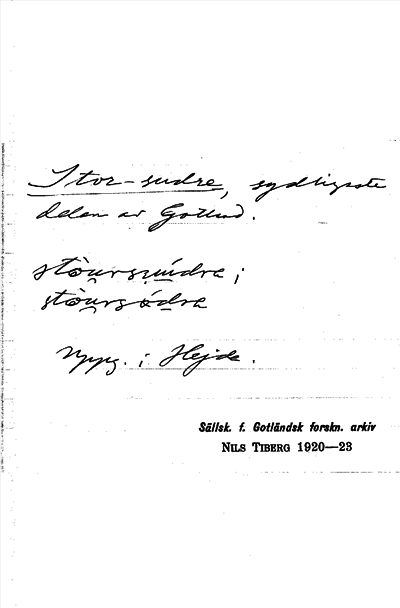 Stor-sudre, sydligaste
delen av Gotland.
stòu̯rsúdrɐ;
stòu̯rsódrɐ
Uppg. i Hejde.
Sällsk. f. Gotländsk forskn. arkiv
NILS TIBERG 1920—23